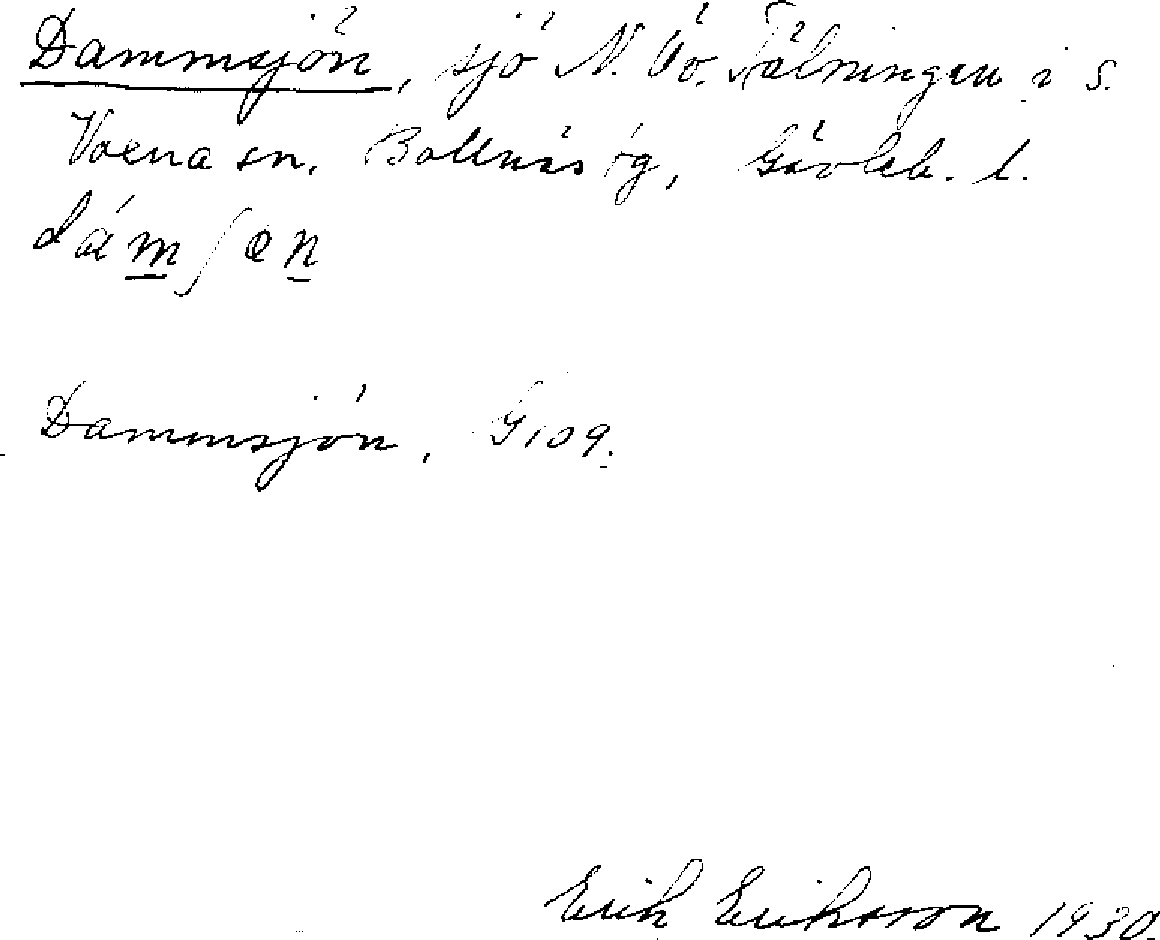 Dammsjön, sjö N. Tälningen i s.
Voxna sn. Bollnäs tg, Gävleb. l.
dàmʃən
Dammsjön, G109.
Erik Eriksson 1930.